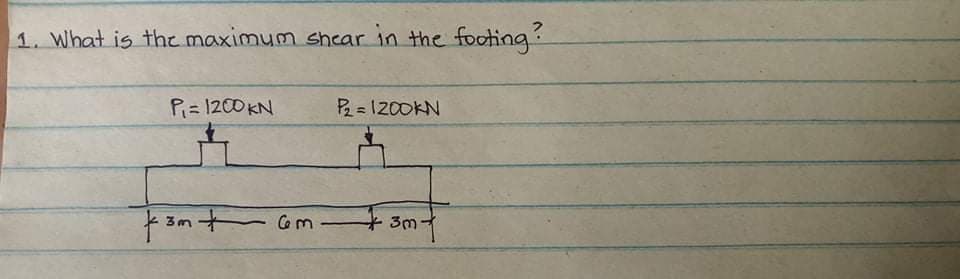 1. What is the maximum shear in the footing?
P₁ = 1200 KN P₂ = 1200KN
3m 6m 3m